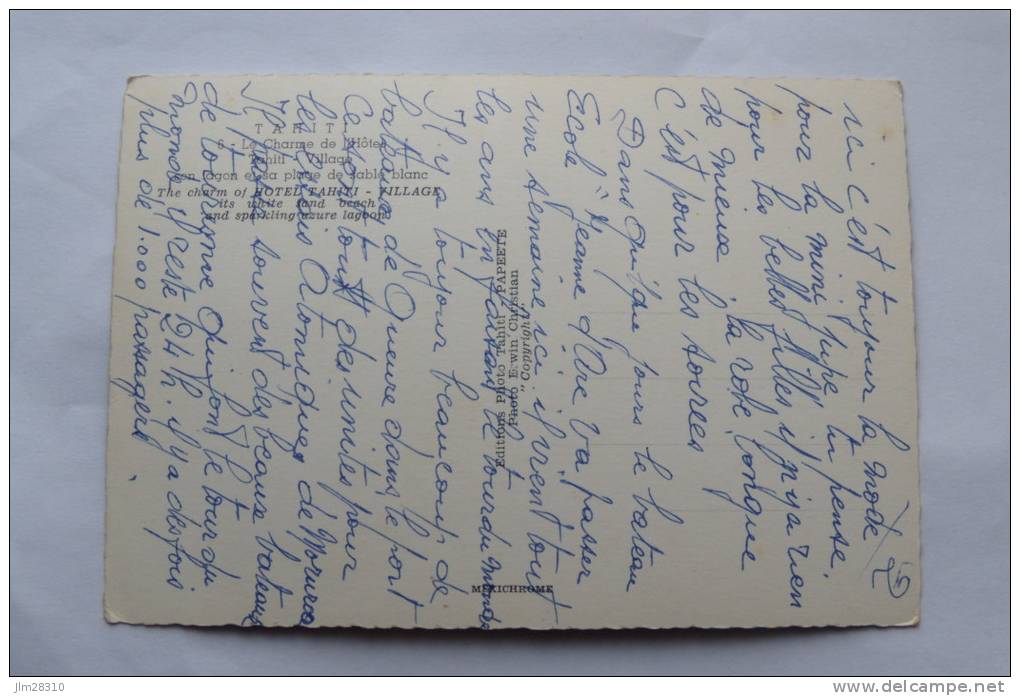 ici c'est toujour la mode
pour la mini jupe tu pense,
pour les belles filles il n'y a rien
de mieux la robe longue
C'est pour les soirées
Dans quelque jours le bateau
Ecole "Jeanne d'Arc va passer
une semaine ici il vient tout
les ans en faisant le tour du monde
Il y a toujour beaucoup de
bateaux de Guerre dans le port
Ce sont tout des unités pour
les Essais Atomiques de Moruroa
Il passe souvent des beaux bateaux
de tourisme Qui font le tour du
monde y reste 24h. il y a des fois
plus de 1.000 passagers.
TAHITI
6 - Le Charme de l'Hôtel
Tahiti - Village
son lagon et sa plage de sable blanc
The charm of HOTEL TAHITI - VILLAGE
its white sand beach
and sparkling azure lagoon
Editions Photo Tahiti - PAPEETE
Photo Erwin Christian
"Copyright"
MEXICHROME
jlm28310
delcampe.net